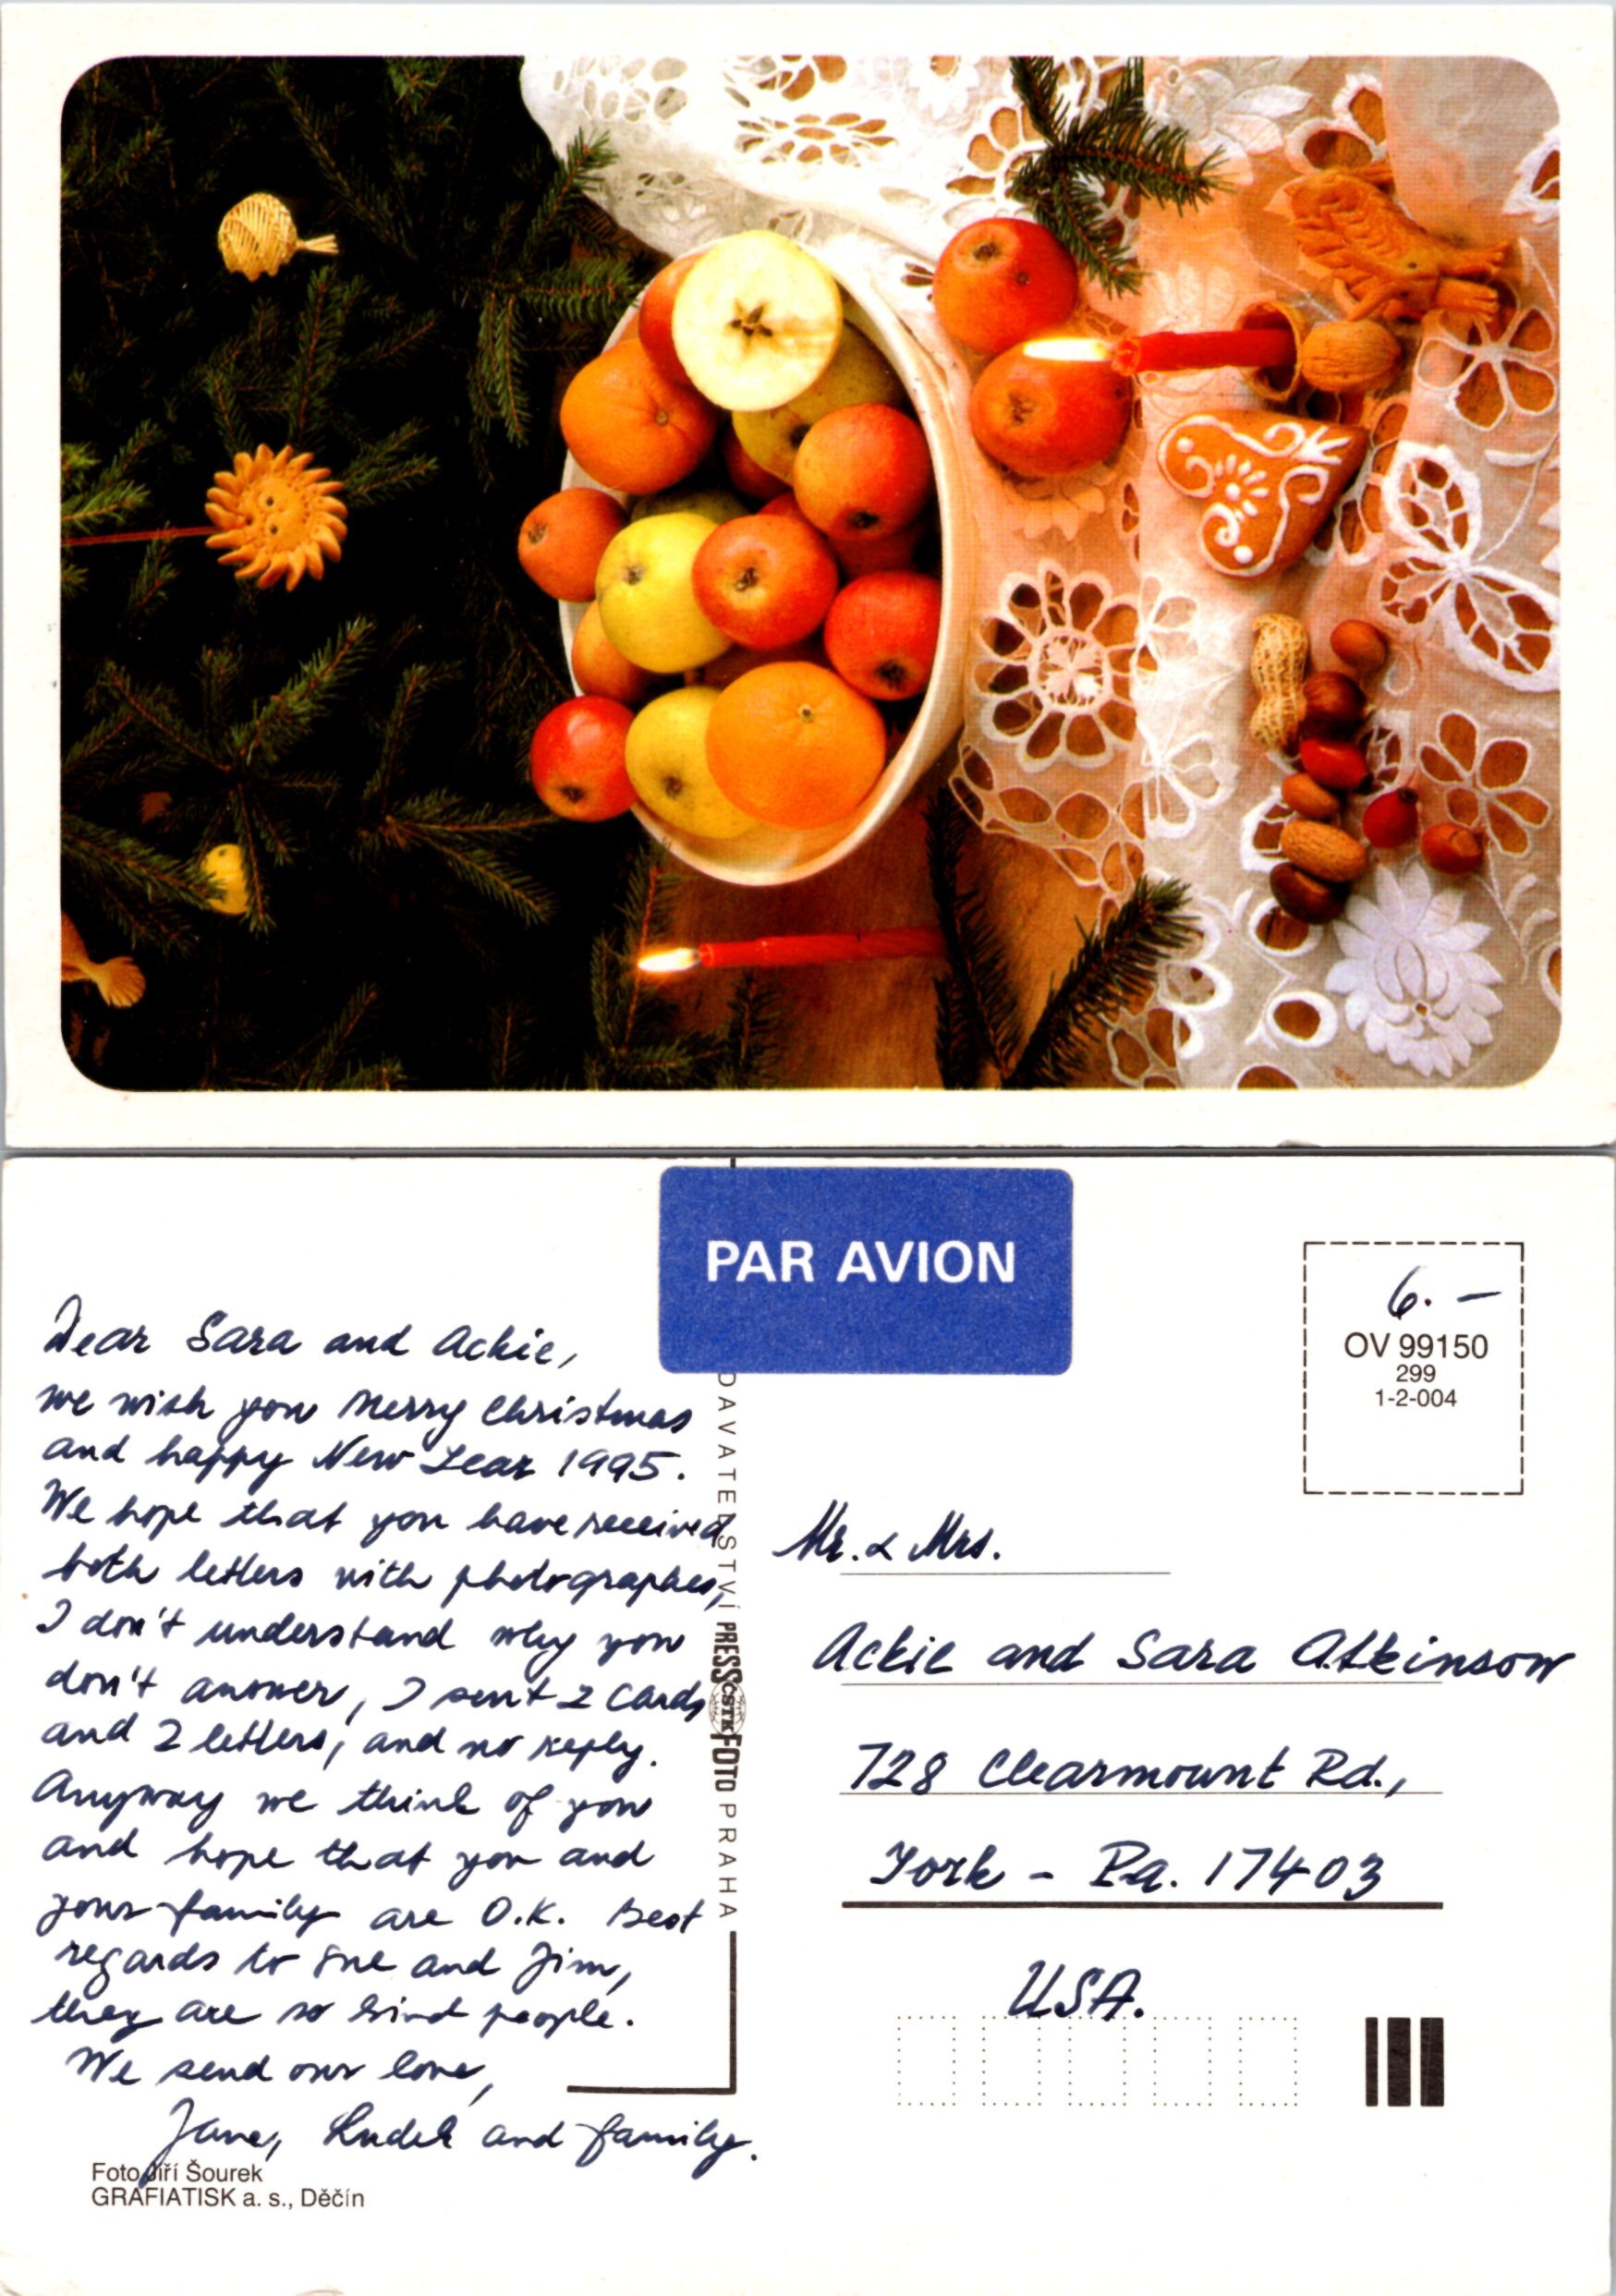 PAR AVION
Dear Sara and Ackie,
we wish you Merry Christmas
and happy New Year 1995.
We hope that you have received
both letters with photographes,
I don't understand why you
don't answer, I sent 2 cards
and 2 letters, and no reply.
Anyway we think of you
and hope that you and
your family are O.K. Best
regards to Sue and Jim,
they are so kind people.
We send our love,
Jane, Ludek and family.
Foto Jiří Šourek
GRAFIATISK a. s., Děčín
DAVATELSTVÍ PRESS ČSTK FOTO PRAHA
6.-
OV 99150
299
1-2-004
Mr. & Mrs.
Ackie and Sara Atkinson
728 Clearmount Rd.,
York - Pa. 17403
USA.